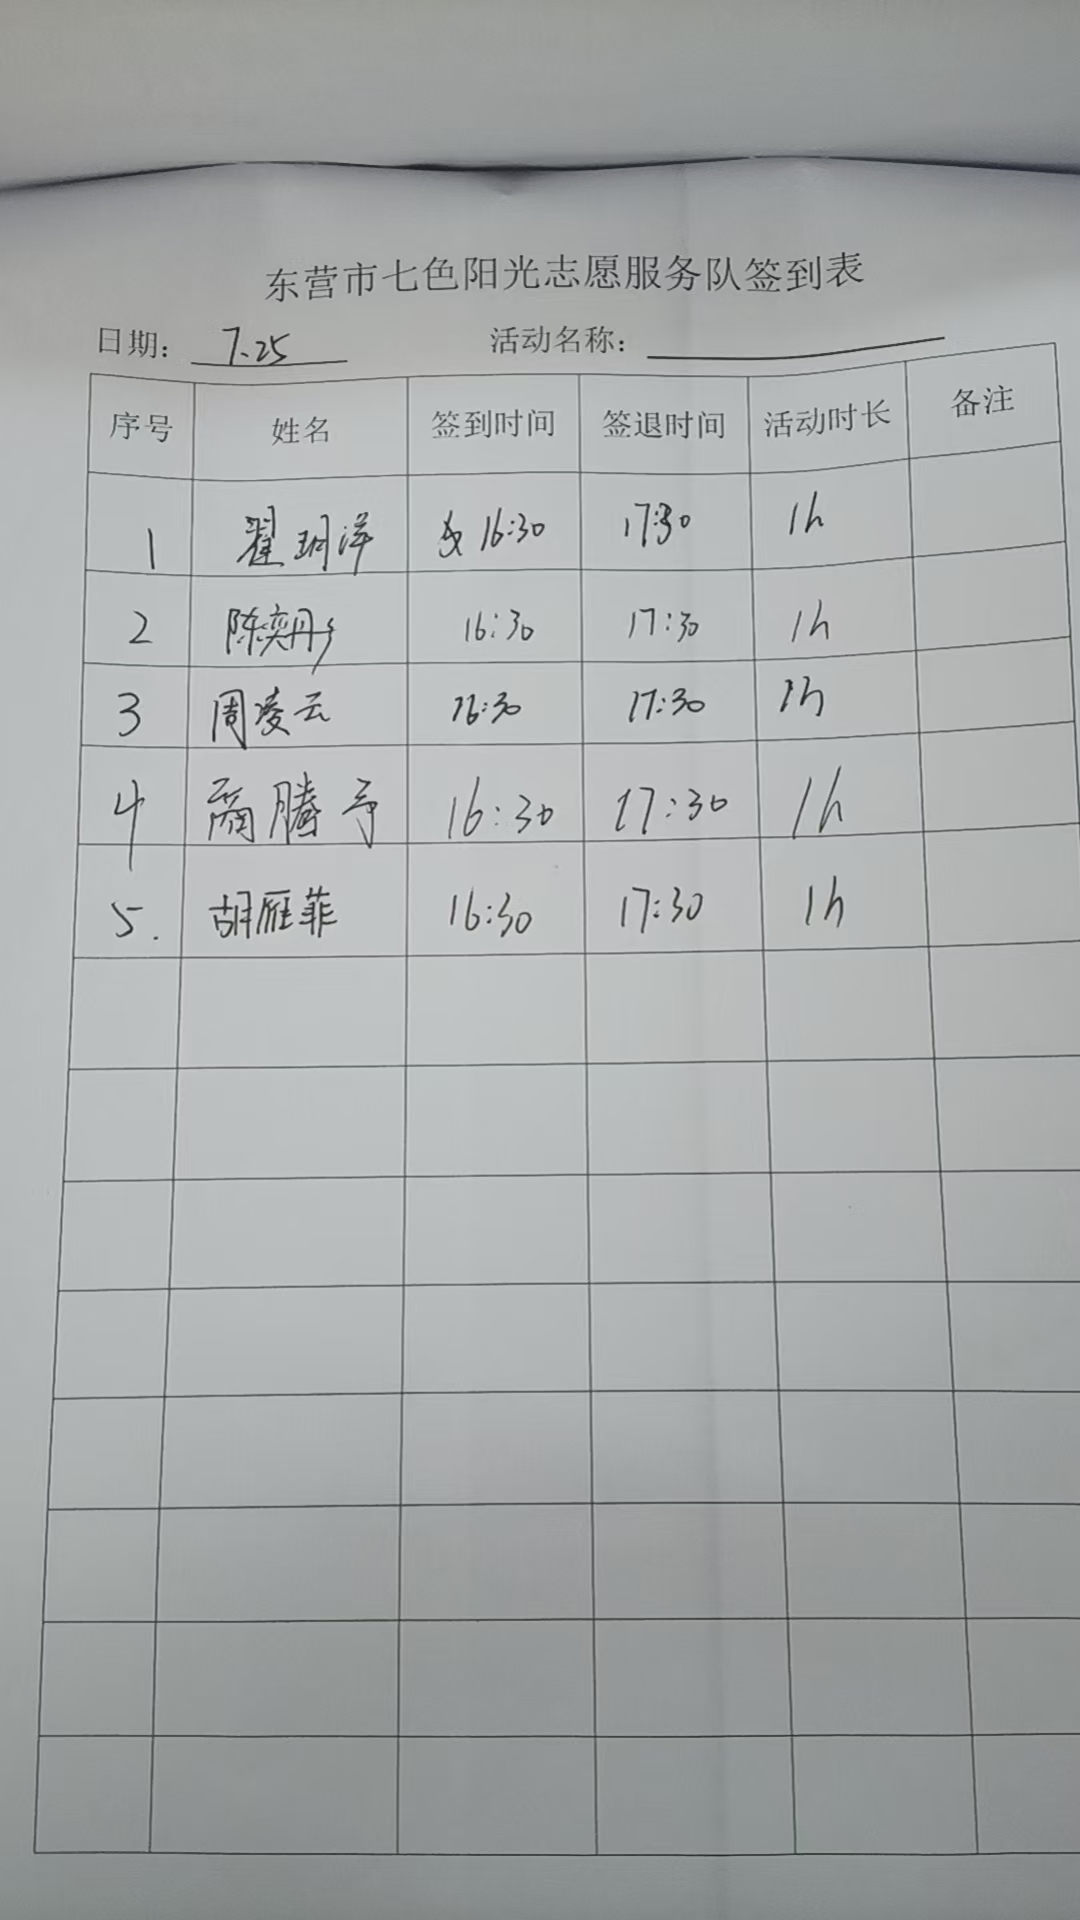 东营市七色阳光志愿服务队签到表
日期： 7.25 活动名称：
序号 姓名 签到时间 签退时间 活动时长 备注
1 翟玥洋 16:30 17:30 1h
2 陈奕彤 16:30 17:30 1h
3 周凌云 16:30 17:30 1h
4 腾予 16:30 17:30 1h
5. 胡雁菲 16:30 17:30 1h